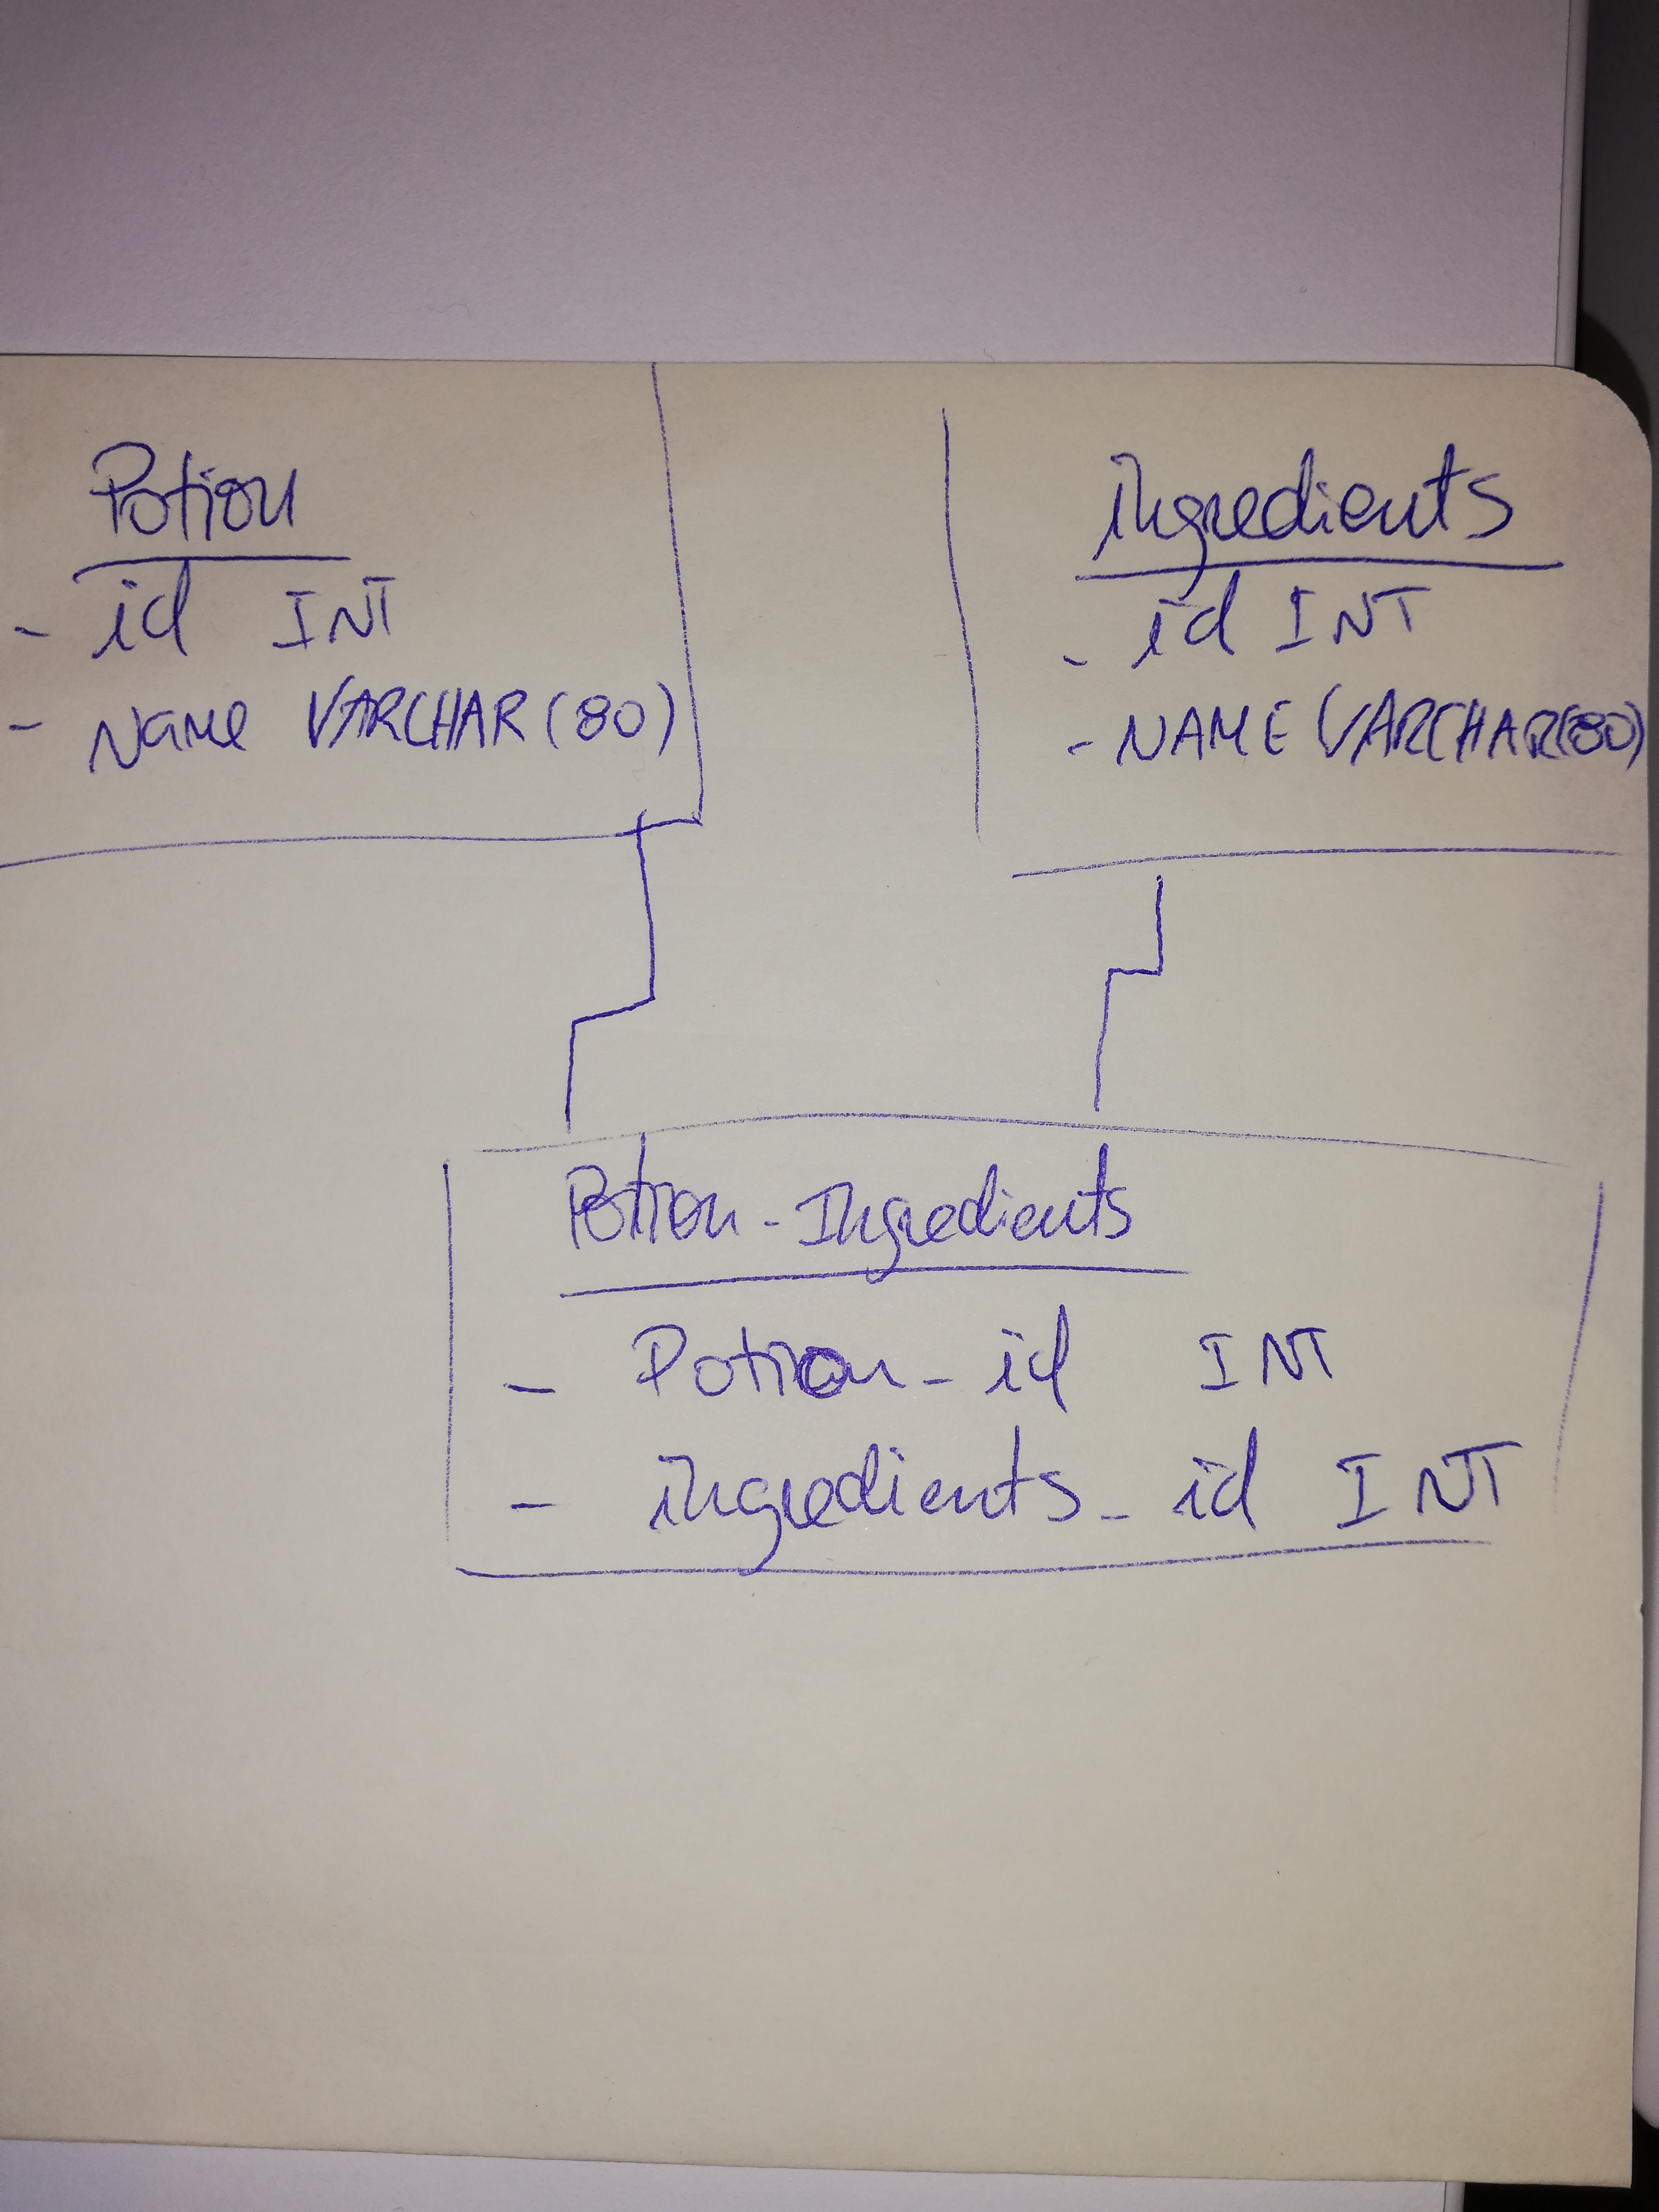 Potion
- id INT
- Name VARCHAR(80)
ingredients
- id INT
- NAME VARCHAR(80)
Potion-Ingredients
- Potion_id INT
- ingredients_id INT